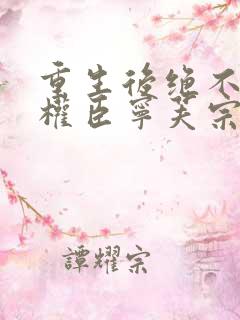 重生後绝不
權臣寧芙宗
譚耀宗